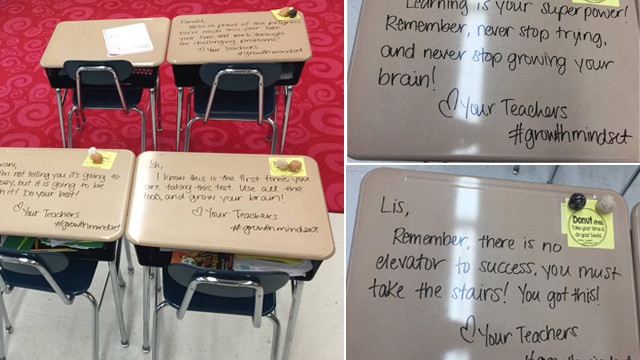 We're so proud of the progress
you've made this year! Take
your time and work through
the challenging problems!
♡ Your Teachers
#growthmindset
I'm not telling you it's going to
easy, but it is going to be
it! Do your best!
♡ Your Teachers
#growthmindset
I know this is the first time you
are taking this test. Use all the
tools, and grow your brain!
♡ Your Teachers
#growthmindset
Learning is your superpower!
Remember, never stop trying,
and never stop growing your
brain!
♡ Your Teachers
#growthmindset
Lis,
Remember, there is no
elevator to success, you must
take the stairs! You got this!
♡ Your Teachers
Donut
Take your time &
do your best!